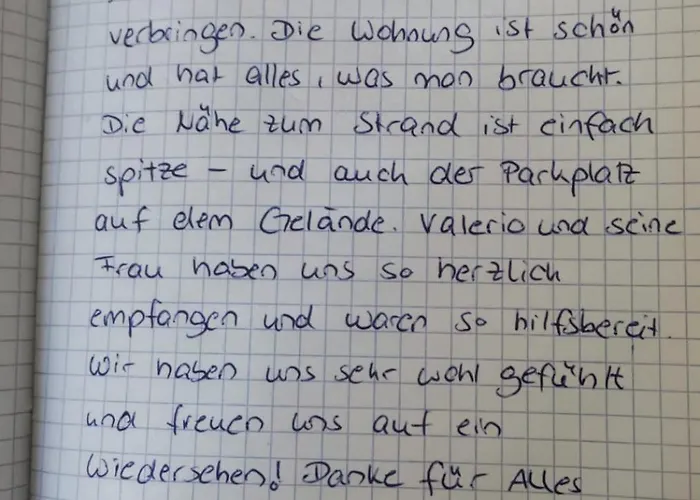 verbringen. Die Wohnung ist schön
und hat alles, was man braucht.
Die Nähe zum Strand ist einfach
spitze – und auch der Parkplatz
auf dem Gelände. Valerio und seine
Frau haben uns so herzlich
empfangen und waren so hilfsbereit.
Wir haben uns sehr wohl gefühlt
und freuen uns auf ein
Wiedersehen! Danke für Alles